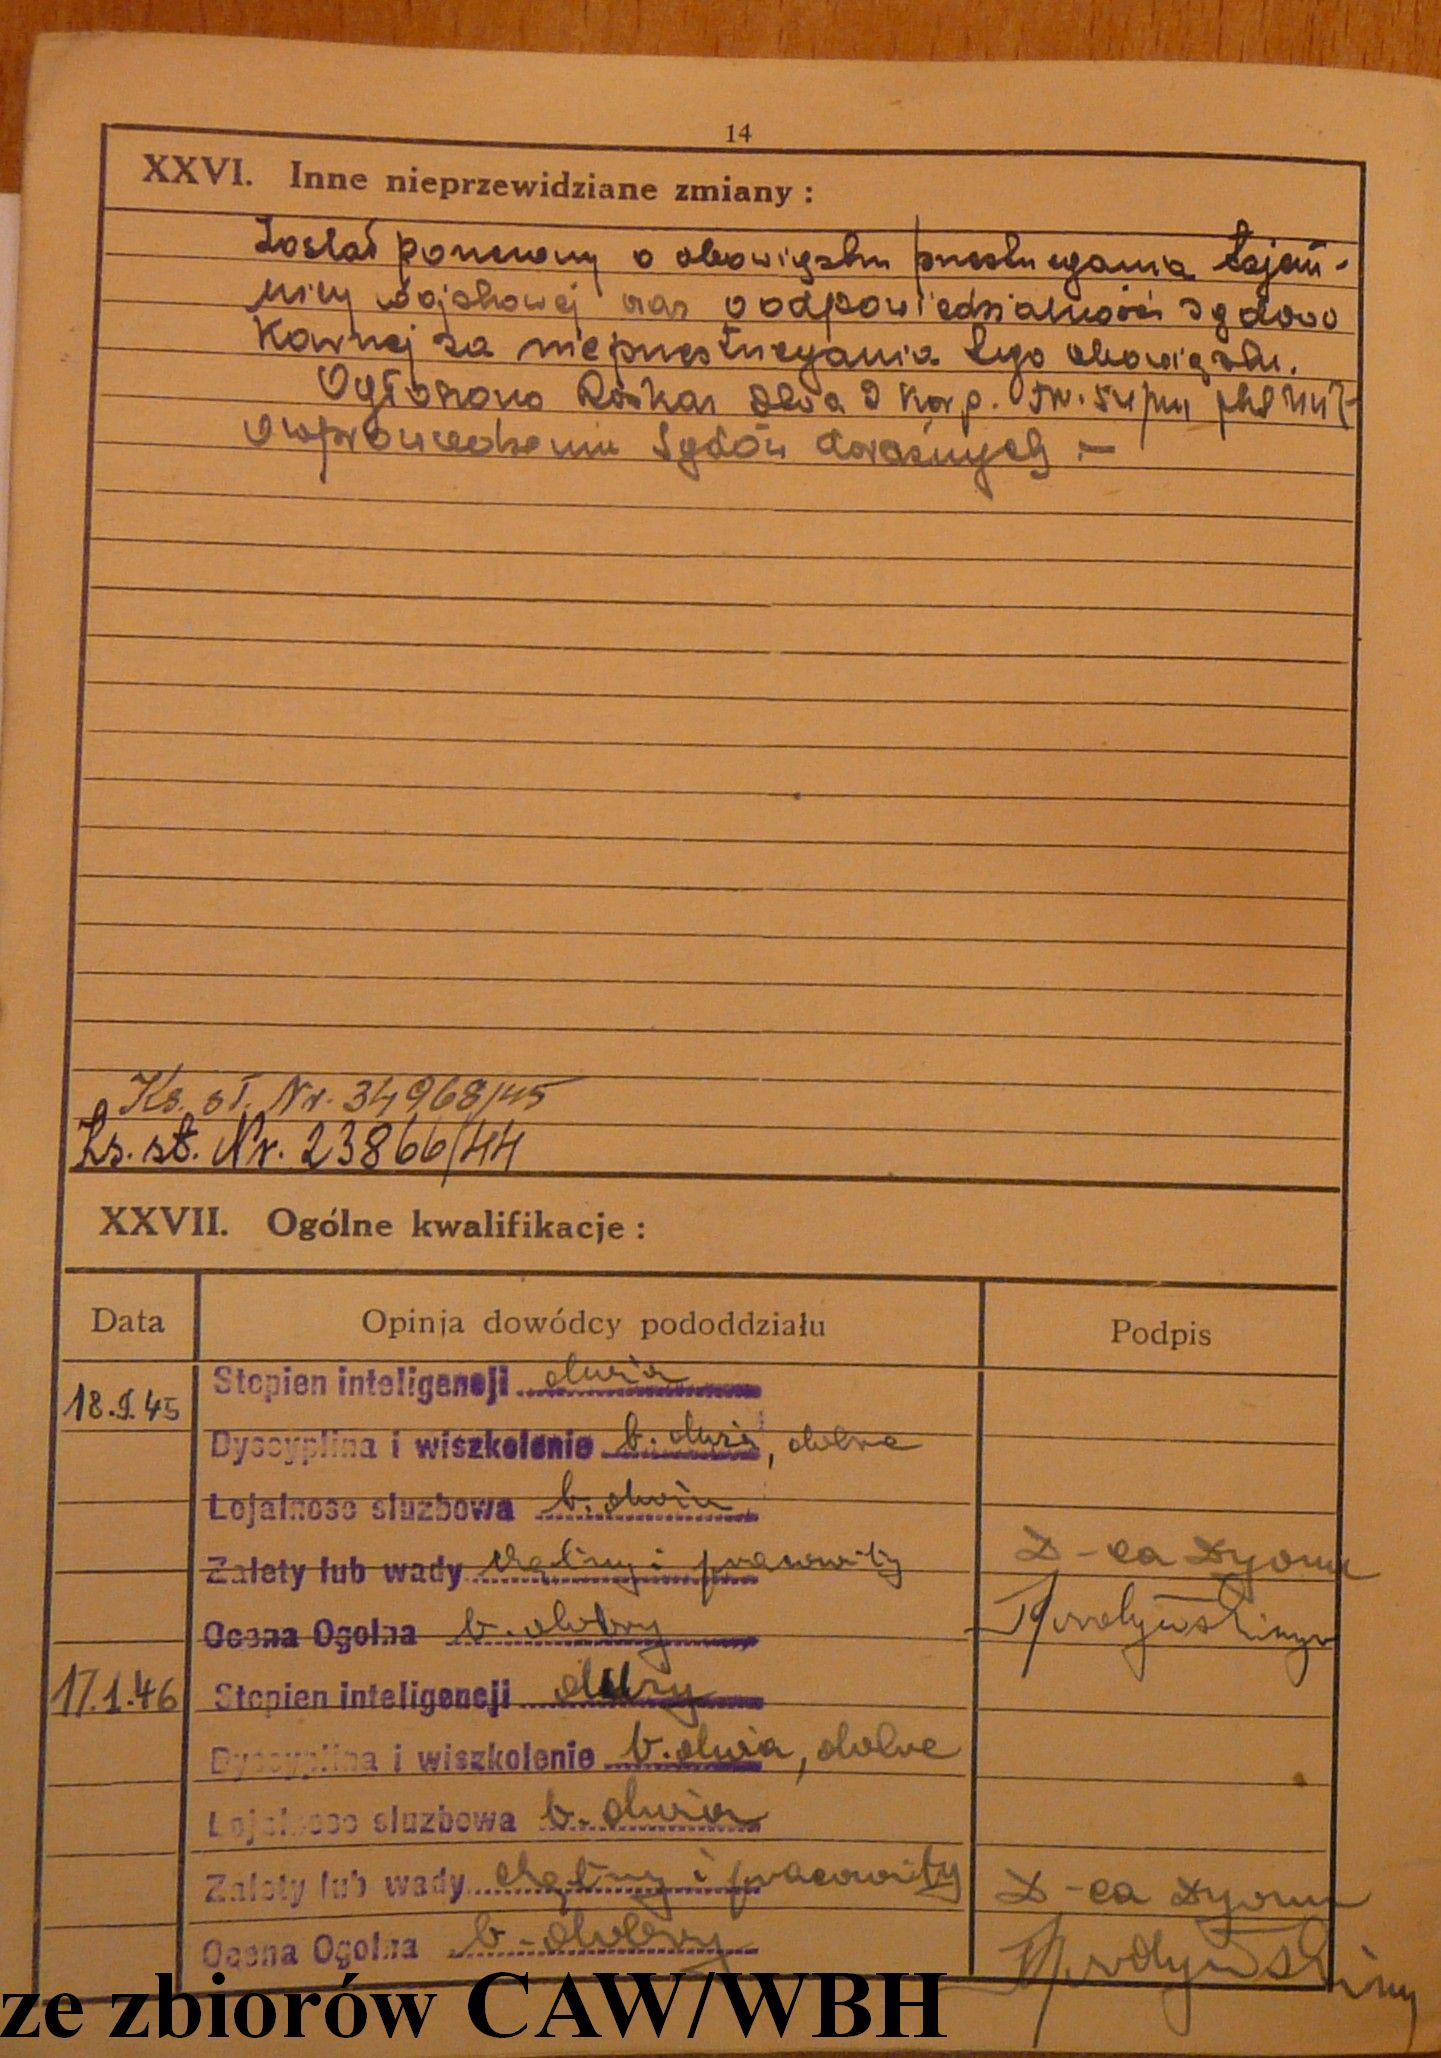 14
XXVI. Inne nieprzewidziane zmiany :
Został pouczony o obowiązku przestrzegania tajem-
nicy wojskowej oraz o odpowiedzialności sądowo
Karnej za nieprzestrzeganie tego obowiązku.
Ogłoszono Rozkaz Kor p.
o wprowadzeniu Sądów doraźnych —
Ks. st. Nr. 34968/45
Ks. st. Nr. 23866/44
XXVII. Ogólne kwalifikacje :
Data Opinja dowódcy pododdziału Podpis
18.I.45 Stopien inteligencji duża
Dyscyplina i wiszkolenie b. duża, dobre
Lojalnosc sluzbowa b. duża
Zalety lub wady chętny i pracowity D-ca Dyonu
Ocena Ogolna b. dobry
17.1.46 Stopien inteligencji duży
Dyscyplina i wiszkolenie b. duża, dobre
Lojalnosc sluzbowa b. duża
Zalety lub wady chętny i pracowity D-ca Dyonu
Ocena Ogolna b. dobry
ze zbiorów CAW/WBH